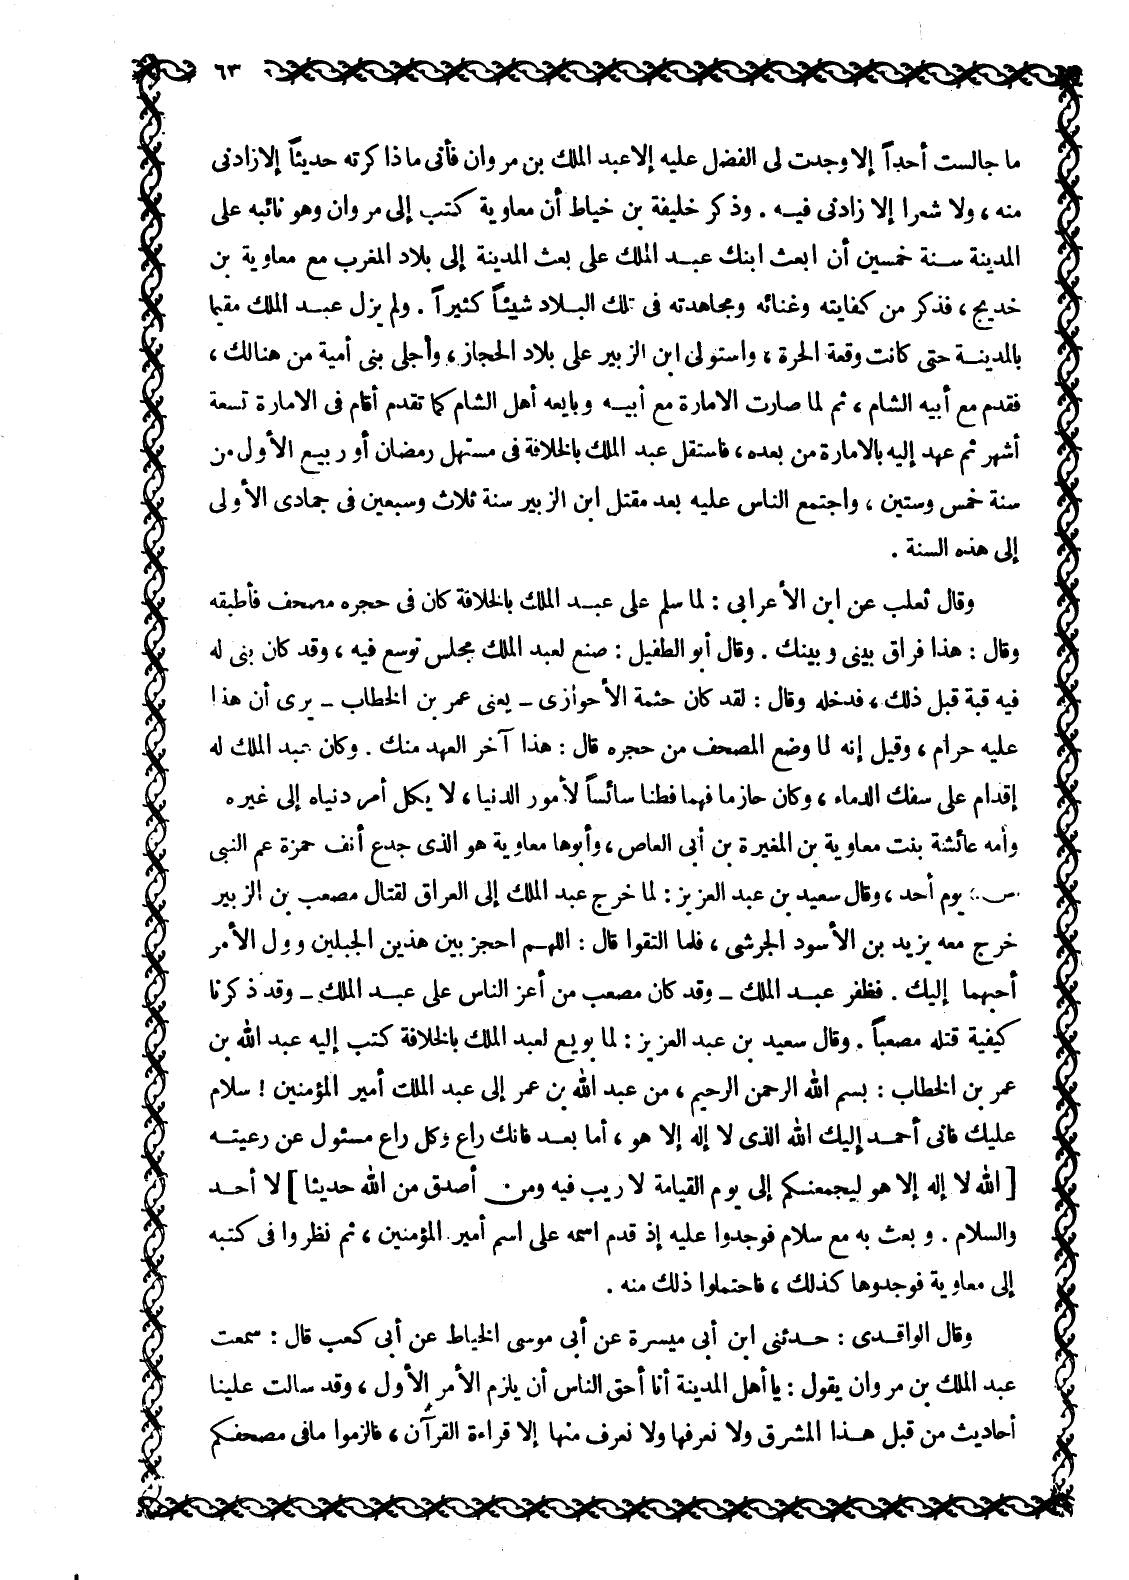 ٦٣
ما جالست أحداً إلا وجدت لى الفضل عليه إلا عبد الملك بن مروان فأنى ما ذا كرته حديثاً إلا زادنى
منه ، ولا شعرا إلا زادنى فيه . وذكر خليفة بن خياط أن معاوية كتب إلى مروان وهو نائبه على
المدينة سنة خمسين أن ابعث ابنك عبد الملك على بعث المدينة إلى بلاد المغرب مع معاوية بن
خديج ، فذكر من كفايته وغنائه ومجاهدته فى تلك البلاد شيئاً كثيراً . ولم يزل عبد الملك مقيما
بالمدينة حتى كانت وقعة الحرة ، واستولى ابن الزبير على بلاد الحجاز ، وأجلى بنى أمية من هنالك ،
فقدم مع أبيه الشام ، ثم لما صارت الامارة مع أبيه وبايعه أهل الشام كما تقدم أقام فى الامارة تسعة
أشهر ثم عهد إليه بالامارة من بعده ، فاستقل عبد الملك بالخلافة فى مستهل رمضان أو ربيع الأول من
سنة خمس وستين ، واجتمع الناس عليه بعد مقتل ابن الزبير سنة ثلاث وسبعين فى جمادى الأولى
إلى هذه السنة .
وقال ثعلب عن ابن الأعرابى : لما سلم على عبد الملك بالخلافة كان فى حجره مصحف فأطبقه
وقال : هذا فراق بينى وبينك . وقال أبو الطفيل : صنع لعبد الملك مجلس توسع فيه ، وقد كان بنى له
فيه قبة قبل ذلك ، فدخله وقال : لقد كان حثمة الأحوازى - يعنى عمر بن الخطاب - يرى أن هذا
عليه حرام ، وقيل إنه لما وضع المصحف من حجره قال : هذا آخر العهد منك . وكان عبد الملك له
إقدام على سفك الدماء ، وكان حازما فهما فطنا سائساً لأمور الدنيا ، لا يكل أمر دنياه إلى غيره
وأمه عائشة بنت معاوية بن المغيرة بن أبى العاص ، وأبوها معاوية هو الذى جدع أنف حمزة عم النبى
ص، يوم أحد ، وقال سعيد بن عبد العزيز : لما خرج عبد الملك إلى العراق لقتال مصعب بن الزبير
خرج معه يزيد بن الأسود الجرشى ، فلما التقوا قال : اللهم احجز بين هذين الجبلين وول الأمر
أحبهما إليك . فظفر عبد الملك - وقد كان مصعب من أعز الناس على عبد الملك - وقد ذكرنا
كيفية قتله مصعباً . وقال سعيد بن عبد العزيز : لما بويع لعبد الملك بالخلافة كتب إليه عبد الله بن
عمر بن الخطاب : بسم الله الرحمن الرحيم ، من عبد الله بن عمر إلى عبد الملك أمير المؤمنين ! سلام
عليك فانى أحمد إليك الله الذى لا إله إلا هو ، أما بعد فانك راع وكل راع مسئول عن رعيته
[ الله لا إله إلا هو ليجمعنكم إلى يوم القيامة لا ريب فيه ومن أصدق من الله حديثا ] لا أحد
والسلام . وبعث به مع سلام فوجدوا عليه إذ قدم اسمه على اسم أمير المؤمنين ، ثم نظروا فى كتبه
إلى معاوية فوجدوها كذلك ، فاحتملوا ذلك منه .
وقال الواقدى : حدثنى ابن أبى ميسرة عن أبى موسى الخياط عن أبى كعب قال : سمعت
عبد الملك بن مروان يقول : يا أهل المدينة أنا أحق الناس أن يلزم الأمر الأول ، وقد سالت علينا
أحاديث من قبل هذا المشرق ولا نعرفها ولا نعرف منها إلا قراءة القرآن ، فالزموا مافى مصحفكم